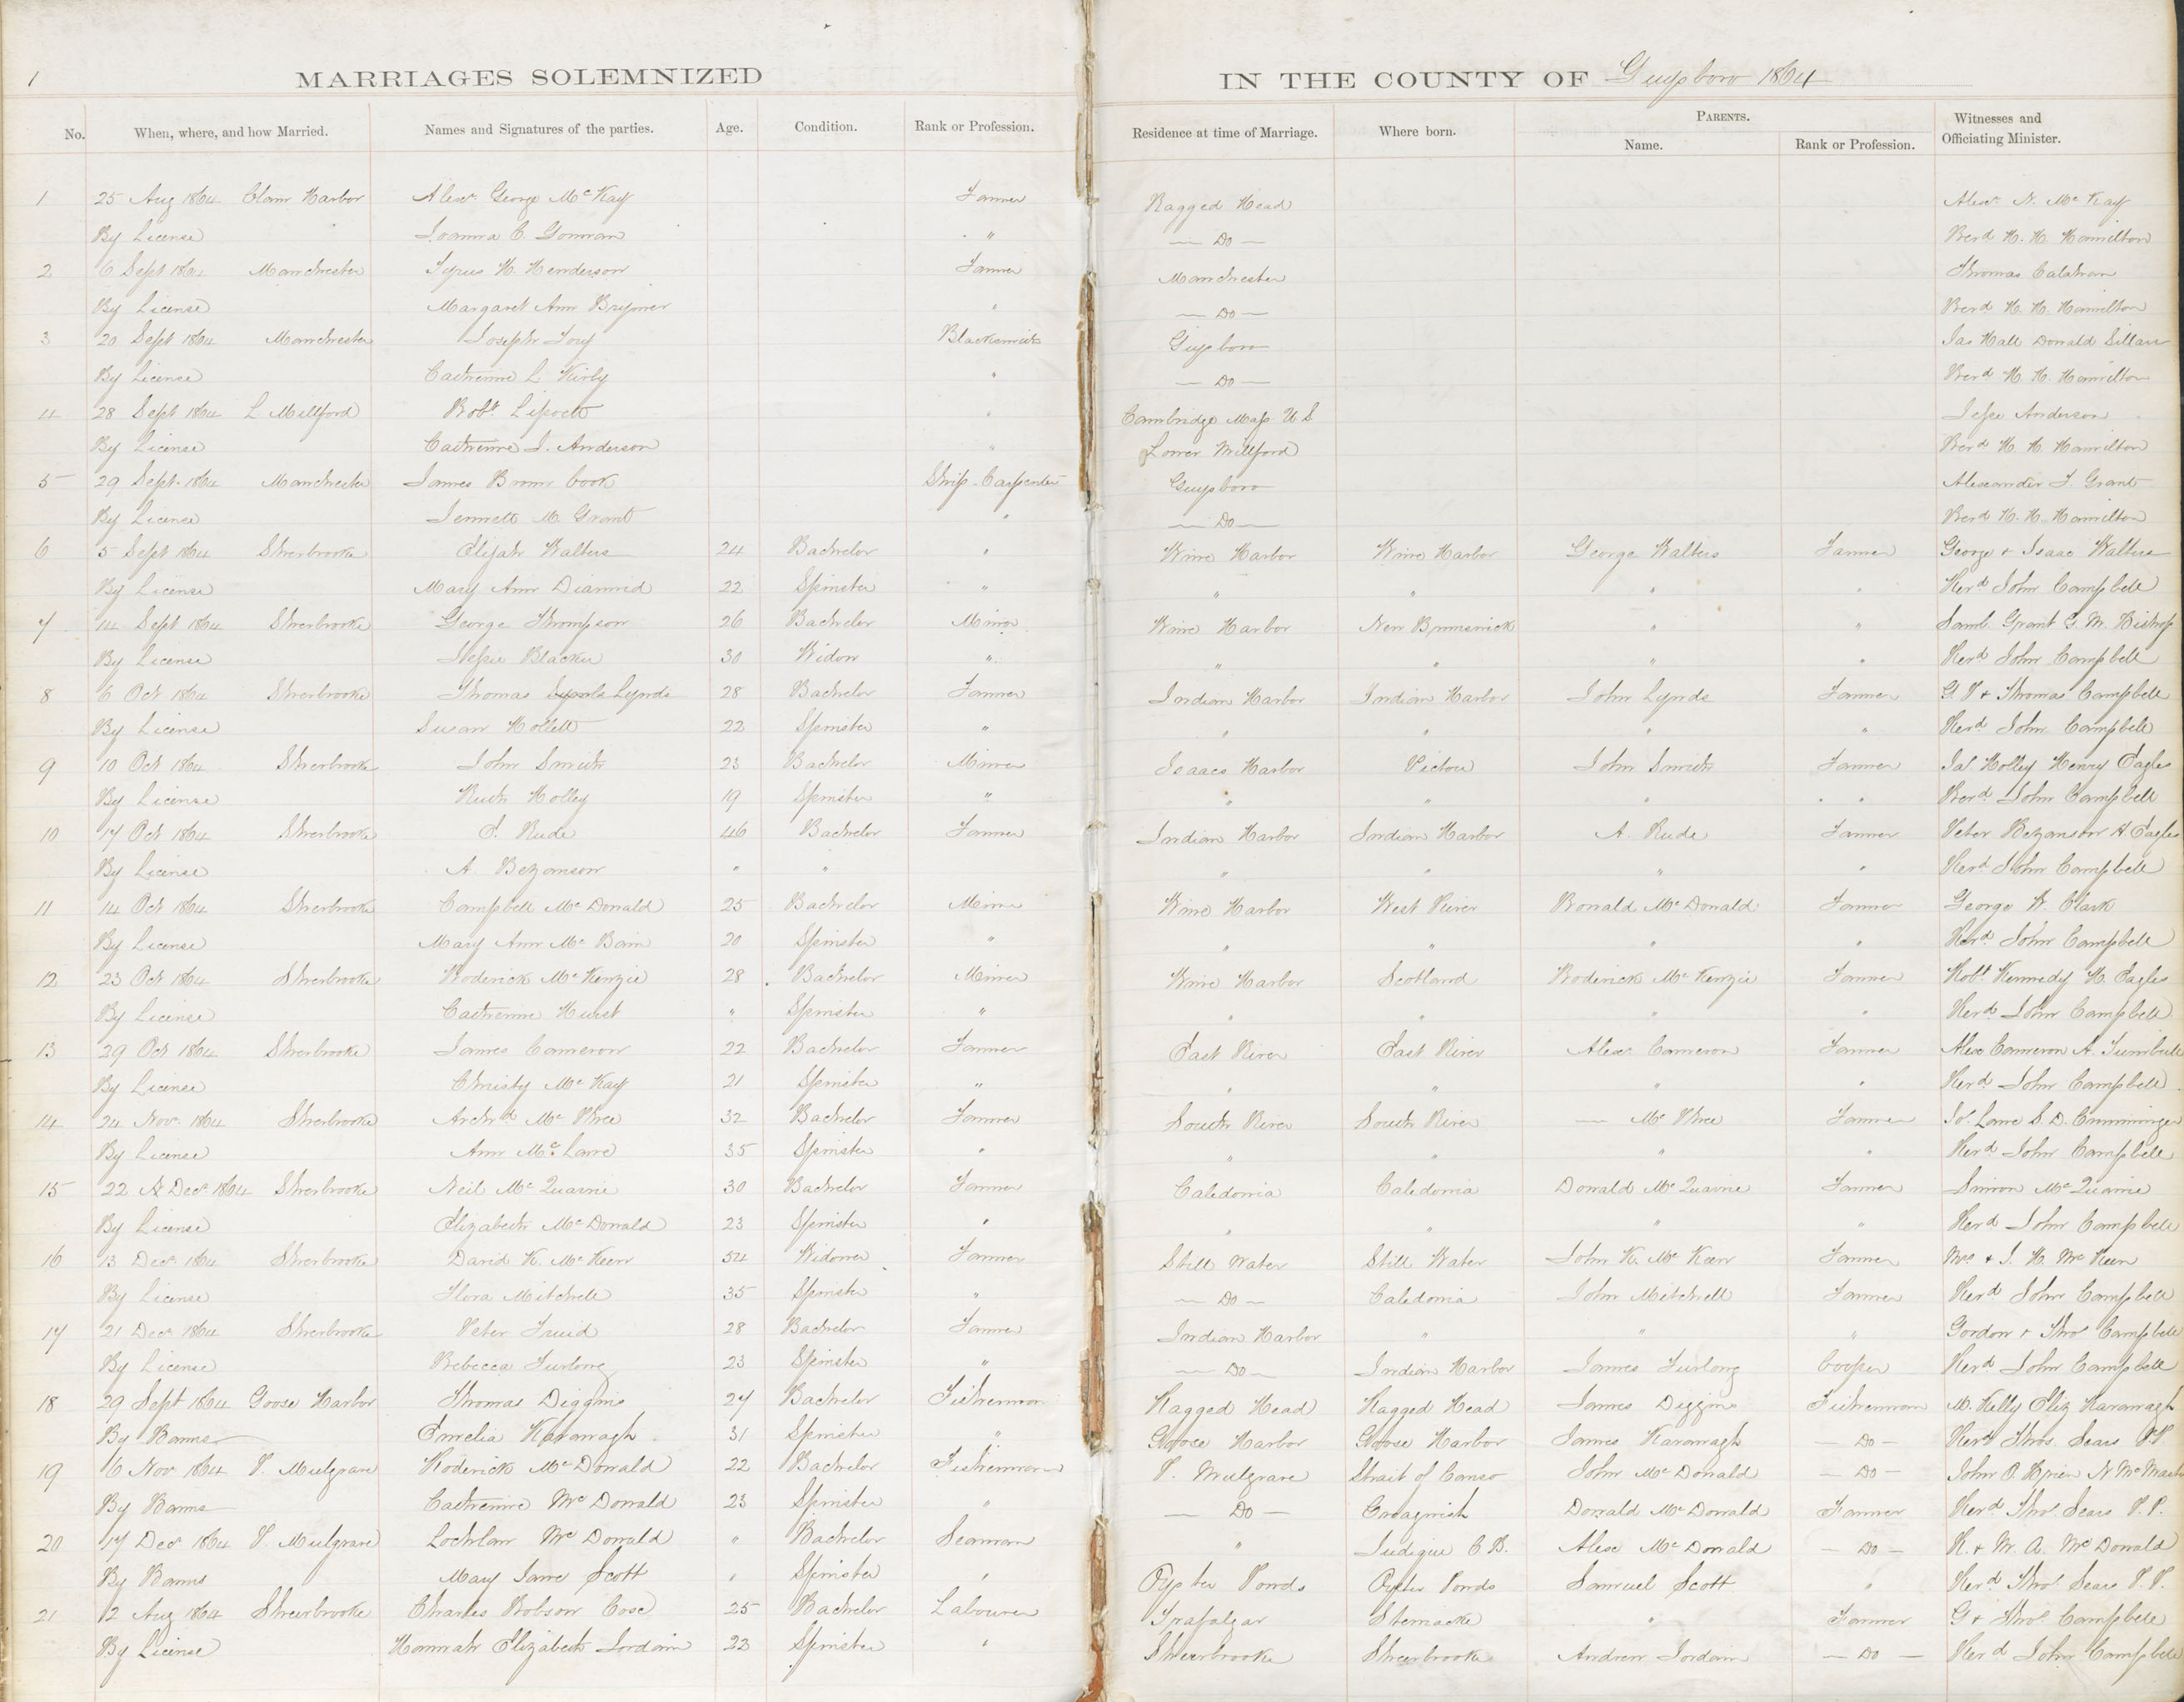 1 MARRIAGES SOLEMNIZED IN THE COUNTY OF Guysboro 1864
No. When, where, and how Married. Names and Signatures of the parties. Age. Condition. Rank or Profession. Residence at time of Marriage. Where born. PARENTS. Name. Rank or Profession. Witnesses and Officiating Minister.
1 25 Aug 1864 Clam Harbor Alexr. George McKay Farmer Ragged Head Alexr. N. McKay
By License Joanna C. Gorman " — Do — Revd H. H. Hamilton
2 6 Sept 1864 Manchester Cyrus H. Henderson Farmer Manchester Thomas
By License Margaret Ann Brymer " — Do — Revd H. H. Hamilton
3 20 Sept 1864 Manchester Joseph Torey Blacksmith Guysboro Jas Hall Donald Sillars
By License Catherine L. Kirby " — Do — Revd H. H. Hamilton
4 28 Sept 1864 L. Millford Robt. " Cambridge Mass U S Jesse Anderson
By License Catherine J. Anderson " Lower Millford Revd H. H. Hamilton
5 29 Sept. 1864 Manchester James Brown Cook Ship-Carpenter Guysboro Alexander J. Grant
By License Jennett M. Grant " — Do — Revd H. H. Hamilton
6 5 Sept 1864 Sherbrooke Elijah Walters 24 Bachelor " Wine Harbor Wine Harbor George Walters Farmer George & Isaac Walters
By License Mary Ann Diarmid 22 Spinster " " " " " Revd John Campbell
7 14 Sept 1864 Sherbrooke George Thompson 26 Bachelor Miner Wine Harbor New Brunswick " " Saml. Grant G. M. Bishop
By License Jessie Blackie 30 Widow " " " " " Revd John Campbell
8 6 Oct 1864 Sherbrooke Thomas Lynds 28 Bachelor Farmer Indian Harbor Indian Harbor John Lynds Farmer G. P & Thomas Campbell
By License Susan Hollett 22 Spinster " " " " " Revd John Campbell
9 10 Oct 1864 Sherbrooke John Smith 23 Bachelor Miner Isaacs Harbor Pictou John Smith Farmer Jas. Holley Henry Eagles
By License Ruth Holley 19 Spinster " " " " " Revd John Campbell
10 17 Oct 1864 Sherbrooke E. Rude 46 Bachelor Farmer Indian Harbor Indian Harbor A. Rude Farmer Peter Bezanson H. Eagles
By License A. Bezanson " " " " " " Revd John Campbell
11 14 Oct 1864 Sherbrooke Campbell McDonald 25 Bachelor Miner Wine Harbor West River Ronald McDonald Farmer George W. Clark
By License Mary Ann McBain 20 Spinster " " " " " Revd John Campbell
12 23 Oct 1864 Sherbrooke Roderick McKenzie 28 Bachelor Miner Wine Harbor Scotland Roderick McKenzie Farmer Robt Kennedy H. Eagles
By License Catherine Hurst " Spinster " " " " " Revd John Campbell
13 29 Oct 1864 Sherbrooke James Cameron 22 Bachelor Farmer East River East River Alexr. Cameron Farmer Alexr Cameron A. Turnbull
By License Christy McKay 21 Spinster " " " " " Revd John Campbell
14 24 Nov. 1864 Sherbrooke Archd McPhee 32 Bachelor Farmer South River South River — McPhee Farmer Jos. Lane S. D. Cumminger
By License Ann McLane 35 Spinster " " " " " Revd John Campbell
15 22 Decr. 1864 Sherbrooke Neil McQuarrie 30 Bachelor Farmer Caledonia Caledonia Donald McQuarrie Farmer Simon McQuarrie
By License Elizabeth McDonald 23 Spinster " " " " " Revd John Campbell
16 13 Decr. 1864 Sherbrooke David K. McKeen 54 Widower Farmer Still Water Still Water John K. McKeen Farmer Mrs. & J. H. McKeen
By License Flora Mitchell 35 Spinster " — Do — Caledonia John Mitchell Farmer Revd John Campbell
17 21 Decr. 1864 Sherbrooke Peter 28 Bachelor Farmer Indian Harbor " " " Gordon & Thos Campbell
By License Rebecca Furlong 23 Spinster " — Do — Indian Harbor James Furlong Cooper Revd John Campbell
18 29 Sept 1864 Goose Harbor Thomas Diggins 27 Bachelor Fisherman Ragged Head Ragged Head James Diggins Fisherman M. Kelly Eliz Kavanagh
By Banns Emelia Kavanagh 31 Spinster " Goose Harbor Goose Harbor James Kavanagh — Do — Revd Thos. Sears P.P.
19 6 Nov 1864 P. Mulgrave Roderick McDonald 22 Bachelor Fisherman P. Mulgrave Strait of Canso John McDonald — Do — John O. Brien N McMaster
By Banns Catherine McDonald 23 Spinster " — Do — Craignish Donald McDonald Farmer Revd Thos. Sears P. P.
20 17 Decr 1864 P. Mulgrave Lochlan McDonald " Bachelor Seaman " Judique C B. Alexr McDonald — Do — R. & M. A. McDonald
By Banns Mary Jane Scott " Spinster " Oyster Ponds Oyster Ponds Samuel Scott " Revd Thos. Sears P. P.
21 12 Aug 1864 Sherbrooke Charles Robson Cose 25 Bachelor Labourer Trafalgar Stewiacke " Farmer G & Thos Campbell
By License Hannah Elizabeth Jordain 23 Spinster " Sherbrooke Sherbrooke Andrew Jordain — Do — Revd John Campbell